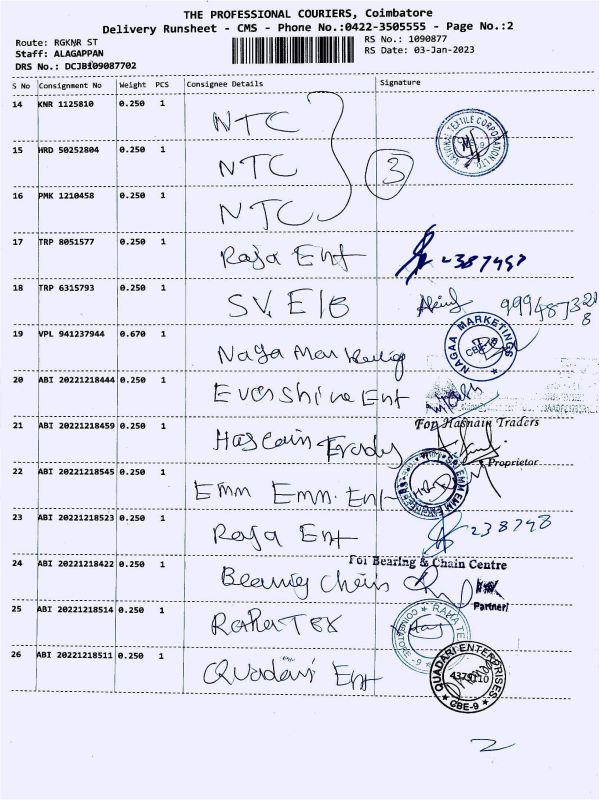 THE PROFESSIONAL COURIERS, Coimbatore
Delivery Runsheet - CMS - Phone No.:0422-3505555 - Page No.:2
Route: RGKNR ST
RS No.: 1090877
Staff: ALAGAPPAN
RS Date: 03-Jan-2023
DRS No.: DCJB109087702
S No Consignment No Weight PCS Consignee Details Signature
14 KNR 1125810 0.250 1 NTC
NATIONAL TEXTILE CORPORATION LTD
15 HRD 50252804 0.250 1 NTC
3
16 PMK 1210458 0.250 1 NTC
17 TRP 8051577 0.250 1 Raja Ent
18 TRP 6315793 0.250 1 S.V. E/B
19 VPL 941237944 0.670 1 Naga Marketing
NAGAA MARKETINGS
20 ABI 20221218444 0.250 1 Evershine Ent
21 ABI 20221218459 0.250 1
For Hasnain Traders
Proprietor
22 ABI 20221218545 0.250 1 Emm Emm. Ent
23 ABI 20221218523 0.250 1 Raja Ent
24 ABI 20221218422 0.250 1 Bearing Chain
For Bearing & Chain Centre
Partner
25 ABI 20221218514 0.250 1 Raka Tex
RAKA TEX
26 ABI 20221218511 0.250 1 Quadari Ent
QUADARI ENTERPRISES
4379110
CBE-9
2